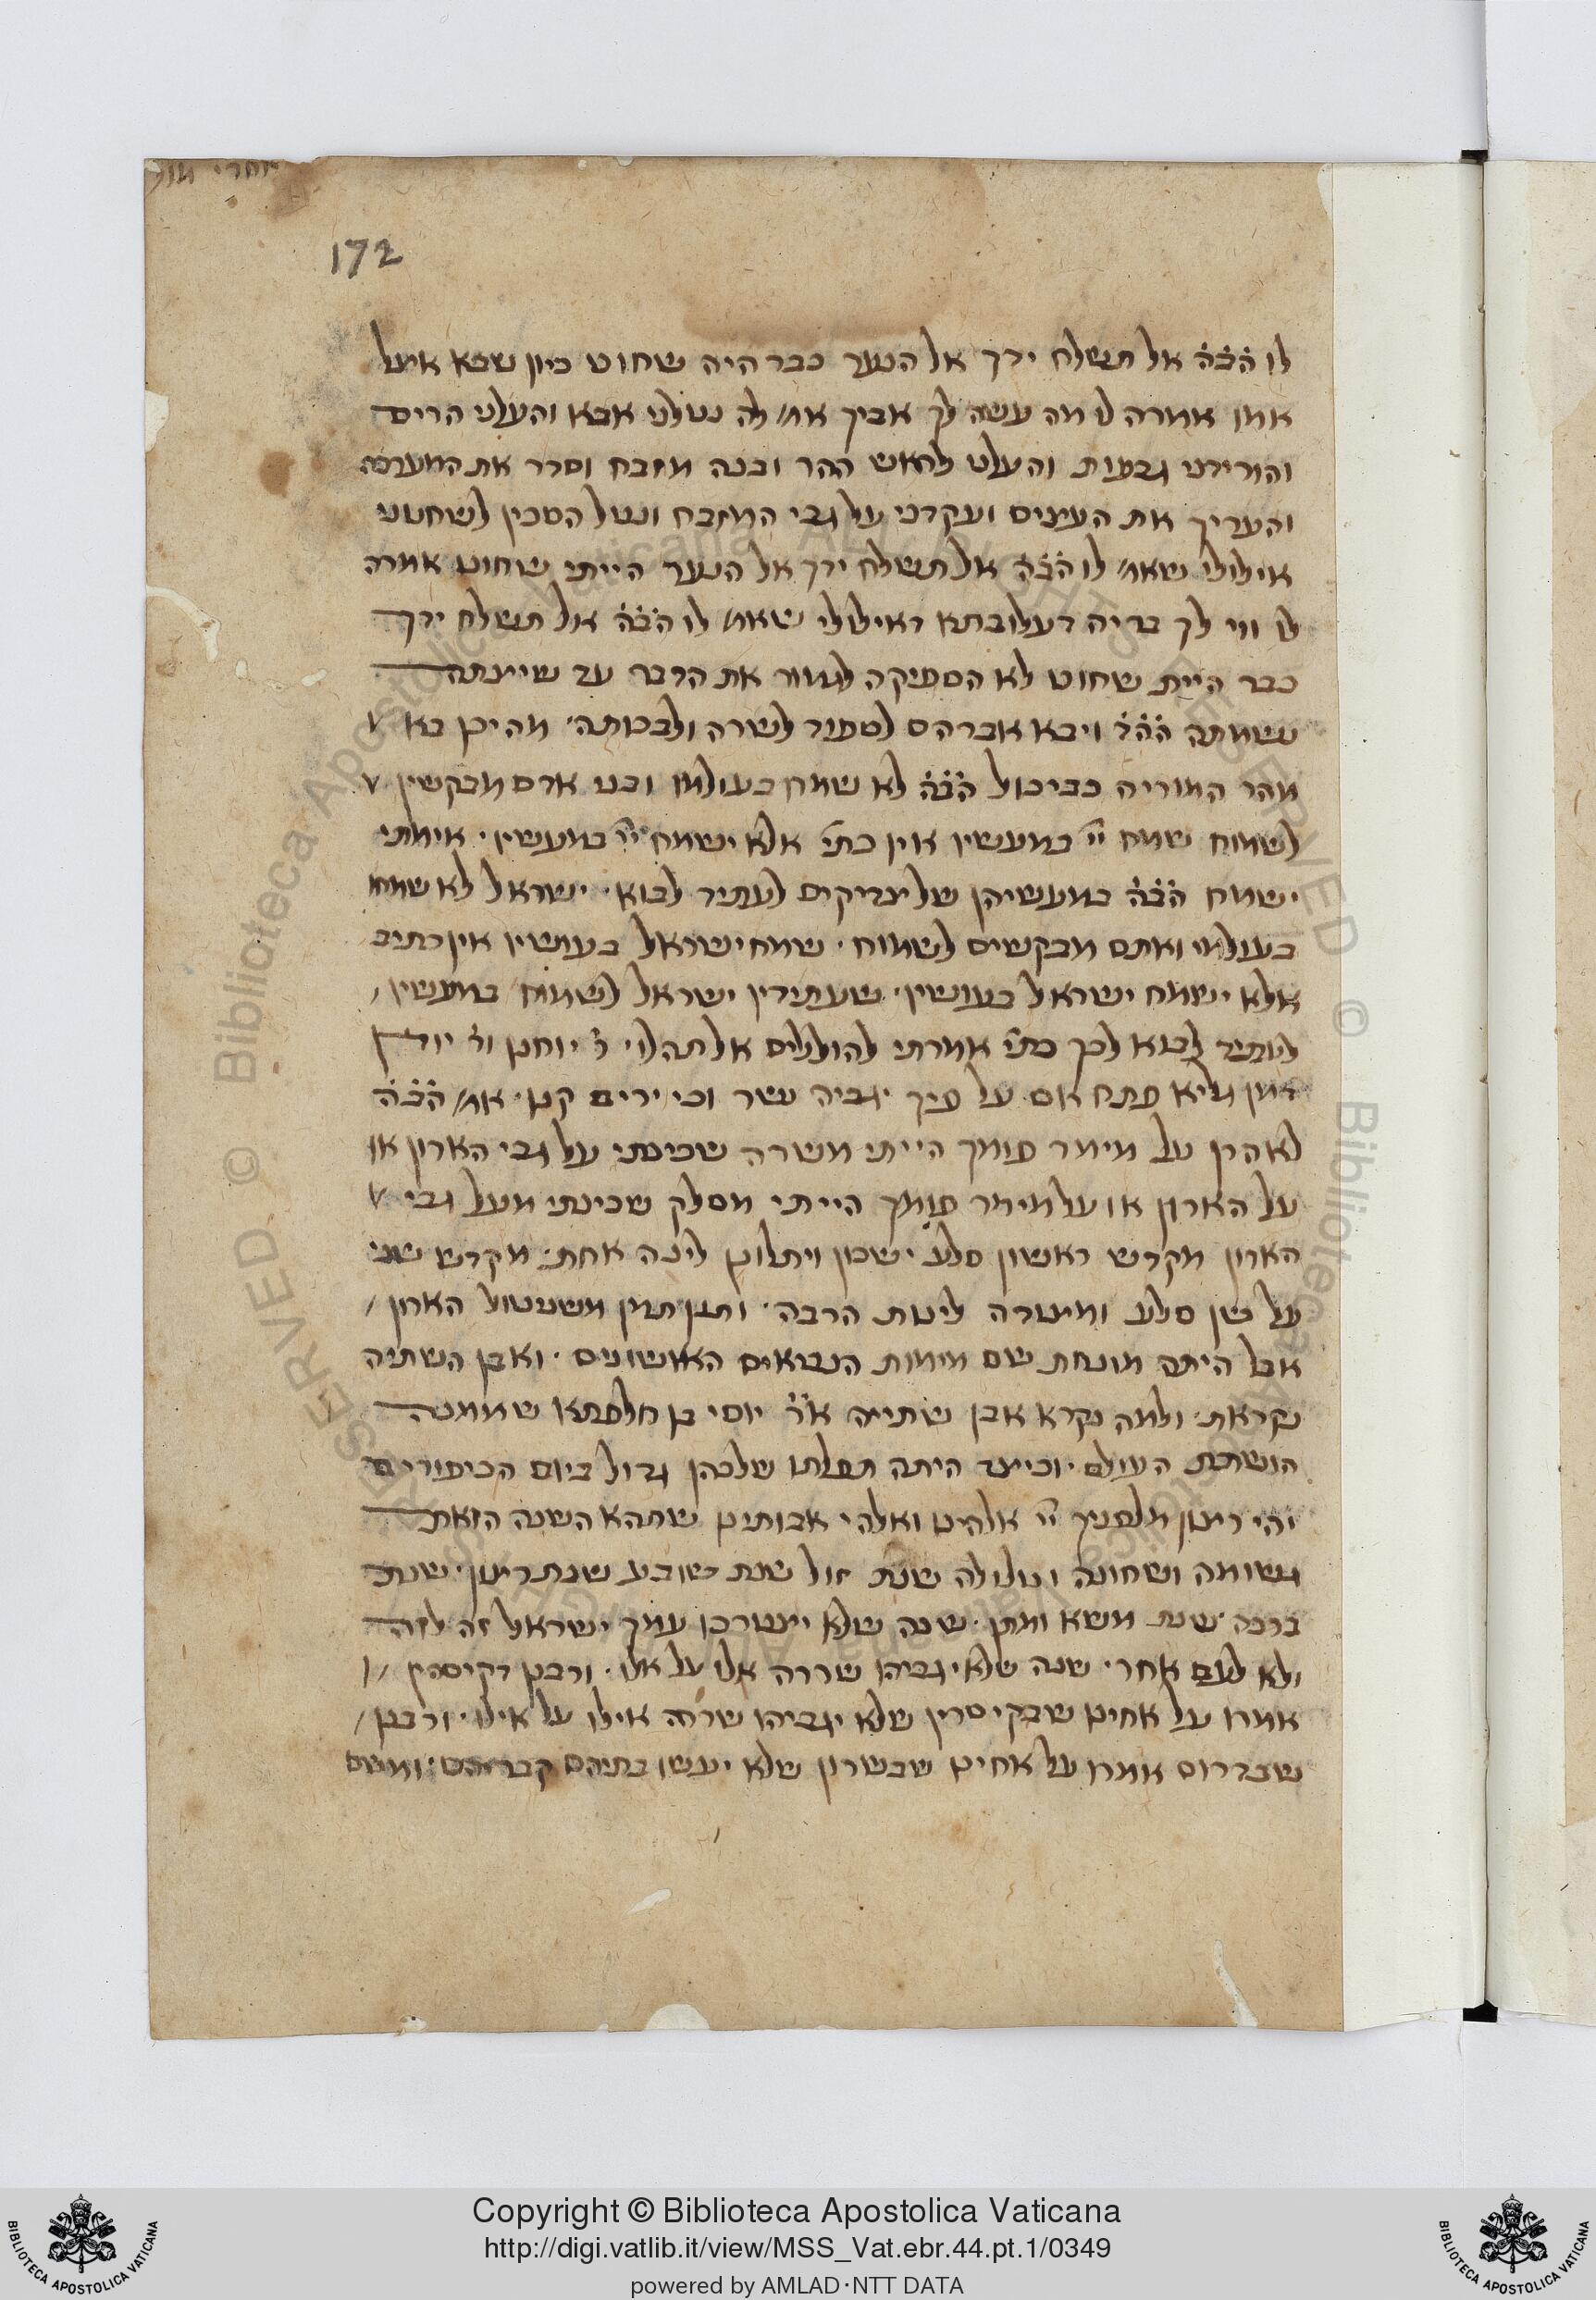 אחרי מות
172
לו הֹבֹהֹ אל תשלח ידך אל הנער כבר היה שחוט כיון שבא אצל
אמו אמרה לו מה עשה לך אביך אמ/ לה נטלני אבא והעלני הרים
והורידני גבעות והעלני לראש ההר ובנה מזבח וסדר את המערכה
והעריך את העצים ועקדני על גבי המזבח ונטל הסכין לשחטני
אילולי שאמ/ לו הֹבֹהֹ אל תשלח ידך אל הנער הייתי שחוט אמרה
לו ווי לך בריה דעלובתא דאילולי שאמ/ לו הֹבֹהֹ אל תשלח ידך
כבר היית שחוט לא הספיקה לגמור את הדבר עד שיצתה
נשמתה הֹהֹדֹ ויבא אברהם לספוד לשרה ולבכותה׳ מהיכן בא
מהר המוריה כביכול הֹבֹהֹ לא שמח בעולמו ובני אדם מבקשין
לשמוח שמח יי במעשיו אין כתי׳ אלא ישמח יי במעשיו׳ אימתי
ישמח הֹבֹהֹ במעשיהן של צדיקים לעתיד לבוא׳ ישראל לא שמחו
בעולמי ואתם מבקשים לשמוח׳ שמח ישראל בעושיו אין כתיב
אלא ישמח ישראל בעושיו׳ שעתידין ישראל לשמוח במעשיו
לעתיד לבוא לכך כתי׳ אמרתי להוללים אל תהלו׳ ר׳ יוחנן ור׳ יודן
דמן גליא פתח אם על פיך יגביה נשר וכי ירים קנו׳ אמ/ הֹבֹהֹ
לאהרן על מימר פומך הייתי משרה שכינתי על גבי הארון או
על הארון או על מימר פומך הייתי מסלק שכינתי מעל גבי
הארון מקדש ראשון סלע ישכון ויתלונן לינה אחת׳ מקדש שני
על שן סלע ומצודה לינות הרבה׳ ותנן תמן משניטול הארון
אבן היתה מונחת שם מימות הנביאים הראשונים׳ ואבן השתיה
נקראת׳ ולמה נקרא אבן שתייה אֹרֹ יוסי בן חלפתא שממנה
הושתת העולם׳ וכיצד היתה תפלתו שלכהן גדול ביום הכיפורים
יהי רצון מלפניך יי אלהינו ואלהי אבותינו שתהא השנה הזאת
גשומה ושחונה וטלולה שנת זול שנת שובע שנת רצון׳ שנת
ברכה׳ שנת משא ומתן׳ שנה שלא יצטרכו עמך ישראל זה לזה
ולא לעם אחר׳ שנה שלא יגביהו שררה אלו על אלו׳ ורבנן דקיסרין
אמרו על אחינו שבקיסרין שלא יגביהו שררה אילו על אילו׳ ורבנן
שבדרום אמרו על אחינו שבשרון שלא יעשו בתיהם קבריהם׳ ומשם
Copyright © Biblioteca Apostolica Vaticana
http://digi.vatlib.it/view/MSS_Vat.ebr.44.pt.1/0349
powered by AMLAD·NTT DATA